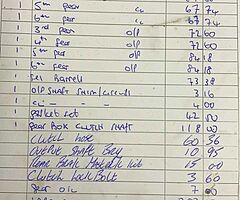 1 5th gear c/s 67 74
1 6th gear c/s 67 74
1 3rd gear o/p 72 60
1 4th gear o/p 72 60
1 5th gear o/p 84 18
1 6th gear o/p 84 18
1 Sel Barrell 73 38
1 o/p SHAFT SHIM / CIRCLIP 3 16
1 4 00
1 gasket set 42 50
1 gear BOX CLUTCH SHAFT 118 00
Clutch hose 60 56
Output Shaft Brg 10 95
kit 15 00
Clutch Lock Bolt 3 60
gear oil 7 00